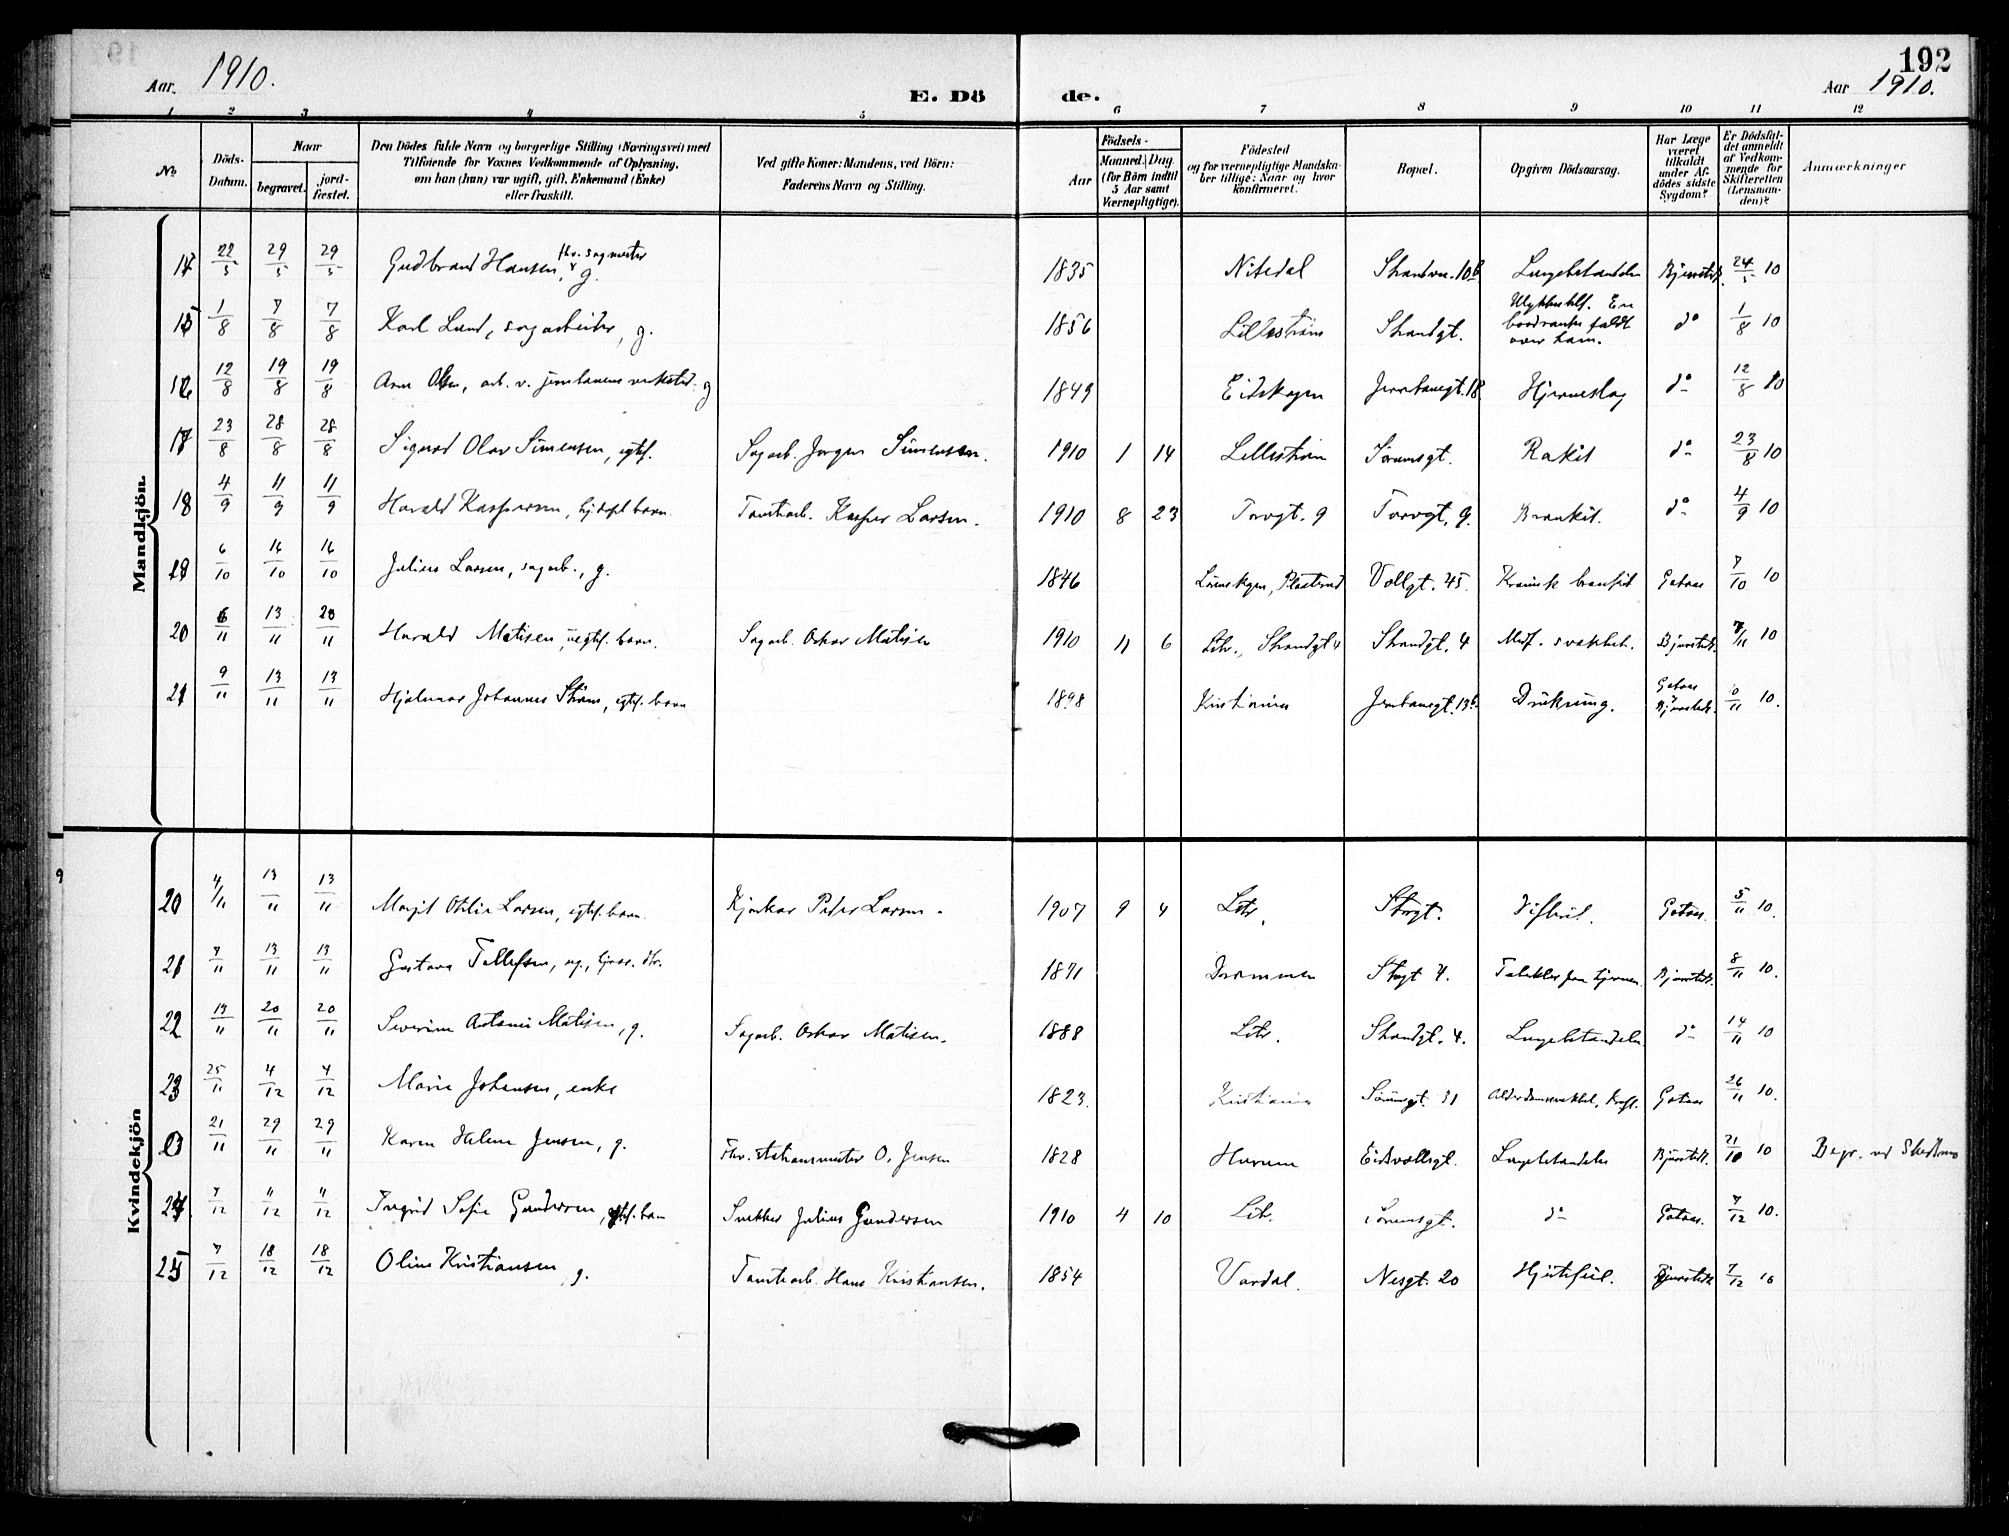 192
Aar. 1910.
E. Dö de.
Aar 1910.
1 2 3 4 5 6 7 8 9 10 11 12
No
Döds-Datum.
Naar begravet. jordfæstet.
Den Dödes fulde Navn og borgerlige Stilling (Næringsvei) med
Tilföiende for Voxnes Vedkommende af Oplysning,
om han (hun) var ugift, gift, Enkemand (Enke)
eller fraskilt.
Ved gifte Koner: Mandens, ved Börn:
Faderens Navn og Stilling.
Födsels-
Aar
Maaned. Dag.
(for Börn indtil
5 Aar samt
Værnepligtige).
Födested
og for værnepligtige Mandskaber tillige: Naar og hvor
konfirmeret.
Bopæl.
Opgiven Dödsaarsag.
Har Læge
været
tilkaldt
under Afdödes sidste
Sygdom?
Er Dödsfaldet anmeldt
af Vedkommende for
Skifteretten
(Lensmanden)?
Anmærkninger
Mandkjön.
14 22/5 29/5 29/5 Gudbrand Hansen, fhv. sagmester g. 1835 Nitedal Strandvn. 10b Lungebetændelse Bjørnstad. 24/5 10
15 1/8 7/8 7/8 Karl Lund, sagarbeider, g. 1856 Lillestrøm Strandgt. Ulykkestilf. En bordranke faldt over ham. do 1/8 10
16 12/8 19/8 19/8 Olsen, arb. v. jernbanens verksted. g 1849 Eidskogen Jernbanegt. 18. Hjerneslag do 12/8 10
17 23/8 28/8 28/8 Sigurd Olav Simensen, egtef. Sagarb. Jørgen Simensen. 1910 1 14 Lillestrøm Sørumsgt. Rakit do 23/8 10
18 4/9 11/9 11/9 Harald Kaspersen, barn. Tomtearb. Kasper Larsen. 1910 8 23 Torvgt. 9 Torvgt. 9. Bronkit. do 4/9 10
19 6/10 16/10 16/10 Julius Larsen, sagarb., g. 1846 Lørenskogen, Vollgt. 45. Kronisk bronkit Gotaas 7/10 10
20 6/11 13/11 20/11 Harald Matisen, uegtef. barn. Sagarb. Oskar Matisen 1910 11 6 Lstr., Strandgt 4 Strandgt. 4 Medf. svakhet. Bjørnstad. 7/11 10
21 9/11 13/11 13/11 Hjalmar Johannes Strøm, egtef. barn 1898 Kristiania Jernbanegt. 13b. Drukning. Gotaas Bjørnstad. 10/11 10.
Kvindekjön
20 4/11 13/11 13/11 Margit Otilie Larsen, egtef. barn. Kjørekar Peter Larsen. 1907 9 4 Lstr. Storgt. Gotaas. 5/11 10.
21 7/11 13/11 13/11 Gustava Tollefsen, ug., 1871 Drammen Storgt 4. Bjørnstad. 8/11 10.
22 13/11 20/11 20/11 Severine Antonie Matisen, g. Sagarb. Oskar Matisen. 1888 Lstr. Strandgt. 4. Lungebetændelse do 14/11 10
23 25/11 4/12 4/12 Marie Johansen, enke 1823. Kristiania Sørumsgt. 31 Alderdomssvakhet, Gotaas 26/11 10.
21/11 29/11 29/11 Karen Helene Jensen, g. Fhv. stationsmester O. Jensen 1828 Hurum Eidsvollsgt. Lungebetændelse Bjørnstad. 21/10 10 Begr. ved Skedsmo
24 7/12 11/12 11/12 Ingrid Sofie Gundersen, egtef. barn Snekker Julius Gundersen 1910 4 10 Lstr. Sørumsgt. do Gotaas. 7/12 10.
25 7/12 18/12 18/12 Oline Kristiansen, g. Tomtearb. Hans Kristiansen. 1854 Vardal. Nesgt. 20 Hjertefeil. Bjørnstad 7/12 10